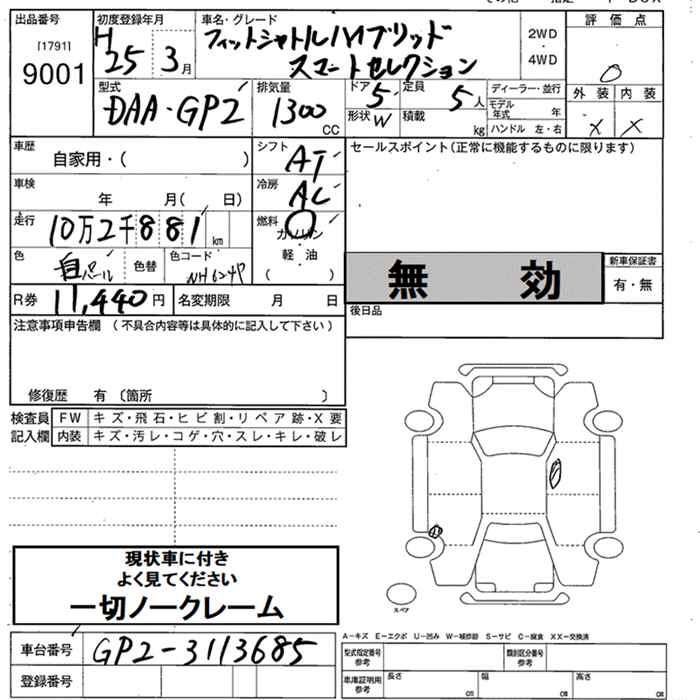 出品番号 初度登録年月 車名・グレード 評価点
[1791] H フィットシャトルハイブリッド 2WD
9001 25 3月 スマートセレクション 4WD
型式 排気量 ドア 5 定員 5人 ディーラー・並行 外装 内装
DAA-GP2 1300 CC 形状 W 積載 kg モデル年式 年
ハンドル 左・右 X X
車歴 自家用・( ) シフト AT セールスポイント(正常に機能するものに限ります)
車検 年 月( 日) 冷房 AC
走行 10万2千881 km 燃料 ガソリン
色 パール 色替 色コード NH624P 軽油
( )
無効 新車保証書
有・無
R券 11,440円 名変期限 月 日
後日品
注意事項申告欄 (不具合内容等は具体的に記入して下さい)
修復歴 有 (箇所 )
検査員 FW キズ・飛石・ヒビ割・リペア跡・X要
記入欄 内装 キズ・汚レ・コゲ・穴・スレ・キレ・破レ
現状車に付き
よく見てください
一切ノークレーム
スペア
車台番号 GP2-3113685
登録番号
A-キズ E-エクボ U-凹み W-補修跡 S-サビ C-腐食 XX-交換済
型式指定番号 参考 類別区分番号 参考
車庫証明用 参考 長さ cm 幅 cm 高さ cm